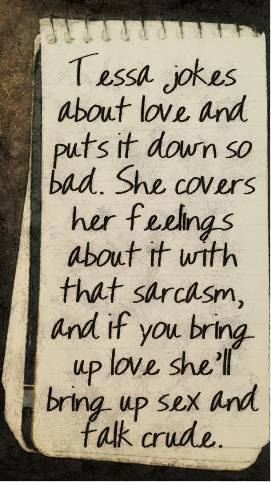 Tessa jokes
about love and
puts it down so
bad. She covers
her feelings
about it with
that sarcasm,
and if you bring
up love she'll
bring up sex and
talk crude.